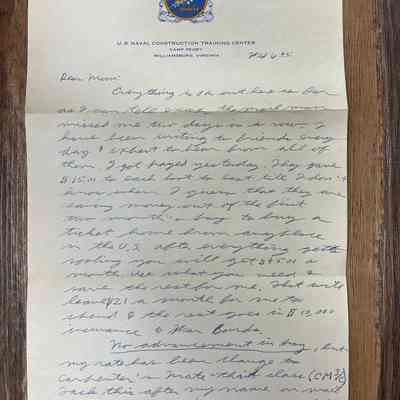 U.S. NAVAL CONSTRUCTION TRAINING CENTER
CAMP PEARY
WILLIAMSBURG, VIRGINIA
Dear Mom:
Everything is OK out here as far
as I can tell the mail man
missed me two days in a row. I
have been writing to friends every
day & expect to hear from all of
them. I got payed yesterday. They gave
$15.00 to each boot to last till I don't
know when. I guess that they are
saving money out of the first
two months buy to buy a
ticket home from anyplace
in the U.S. after everything gets
rolling you will get $ a
month. Use what you need &
save the rest for me. That will
leave $21 a month for me to
spend & the rest goes in $10,000
insurance & War Bonds.
No advancement in pay, but
my rate has been change to
Carpenter's Mate third class (CM 3/c)
this after my name on mail